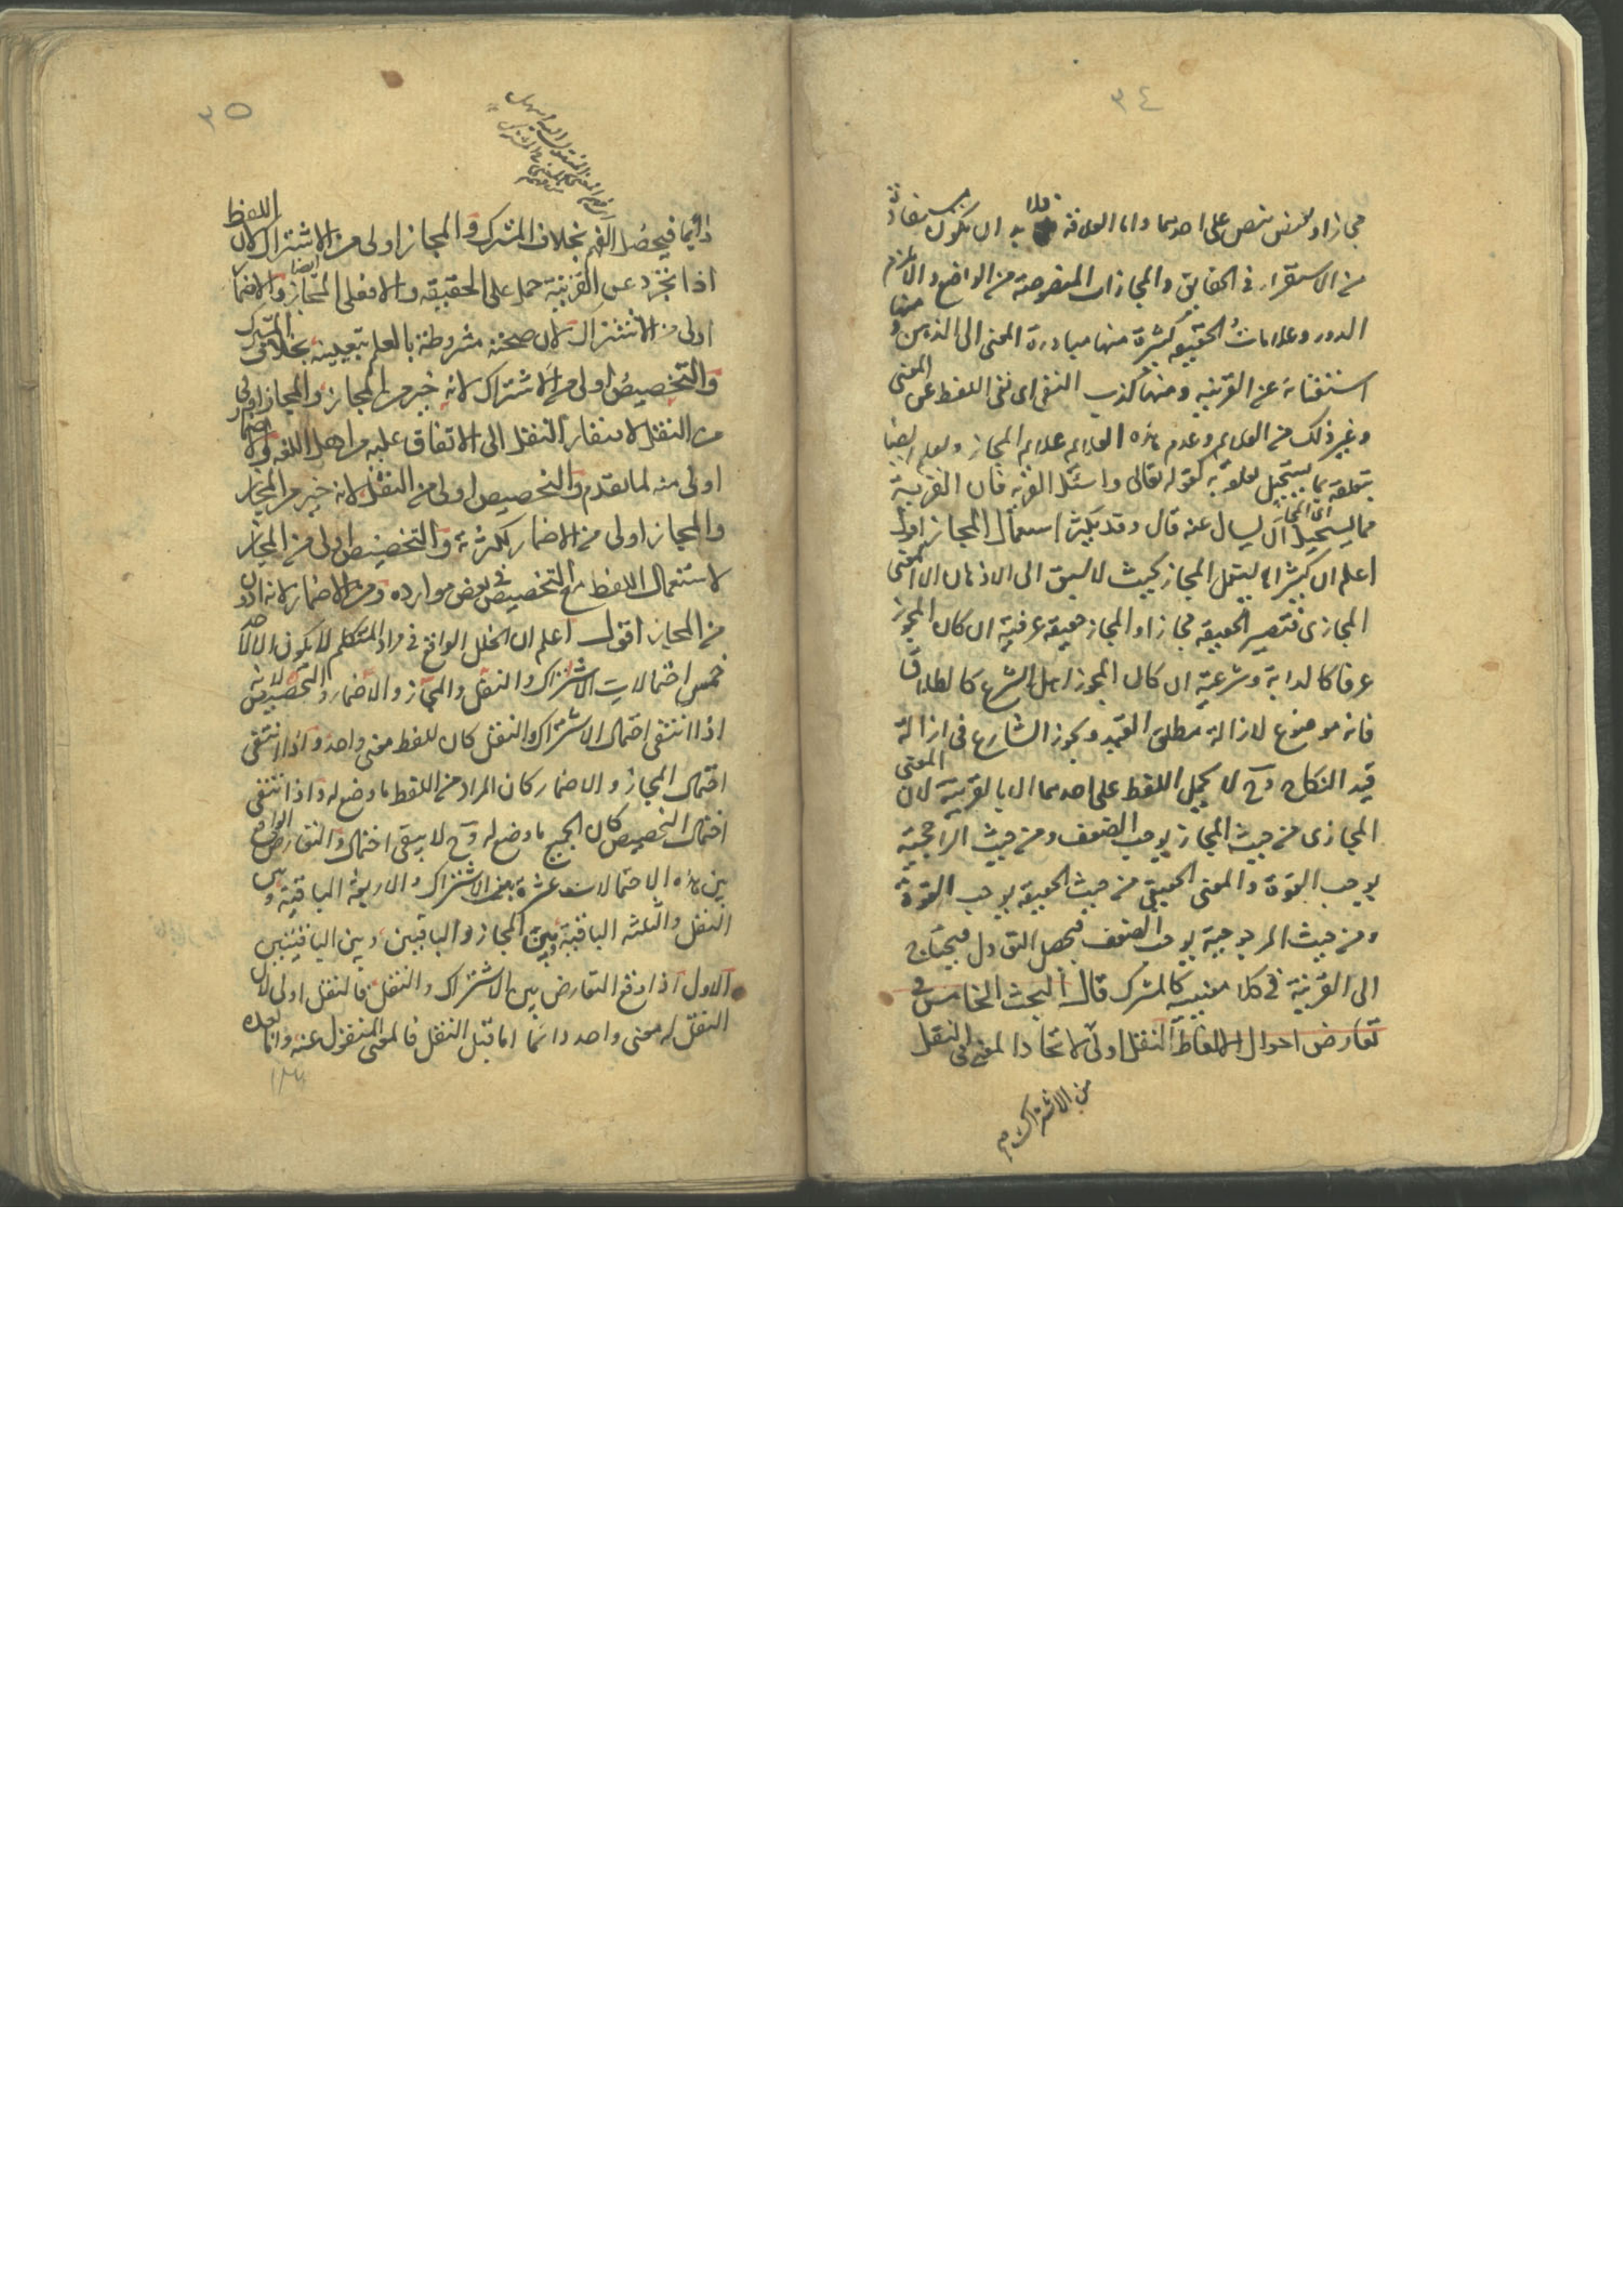 ٣٤
مجازا او لبعض ينص على احدهما واما العلاقة فلا بد ان يكون مستفادة
من الاستقراء في الحقايق والمجازات المنصوصة من الواضع والا لزم
الدور وعلامات الحقيقة كثيرة منها مبادرة المعنى الى الذهن و منها
استغنائه عن القرينه ومنها كذب النفي اى نفى اللفظ عن المعنى
وغير ذلك من العلايم وعدم هذه العلايم علايم المجاز ويعلم ايضا
بتعلقه بما يستحيل تعلقه به كقوله تعالى واسئل القرية فان القرية
مما يستحيل ان يسال عنه قال وقد يكثر استعمال المجاز اقول
اى المجاز
اعلم ان كثيرا ما يستعمل المجاز بحيث لا يسبق الى الاذهان الا المعنى
المجازى فتصير الحقيقه مجازا والمجاز حقيقه عرفية ان كان المجوز
عرفا كالدابة وشرعية ان كان المجوز اهل الشرع كالطلاق
فانه موضوع لازالة مطلق القيد ويجوز الشارع فى ازالة
قيد النكاح وح لا يحمل اللفظ على احدهما الا بالقرينة لان المعنى
المجازى من حيث المجاز يوجب الضعف ومن حيث الراجحية
يوجب القوة والمعنى الحقيقى من حيث الحقيقه يوجب القوة
ومن حيث المرجوحية يوجب الضعف فيحصل التعادل فيحتاج
الى القرينة فى كلا معنييه كالمشترك قال البحث الخامس فى
تعارض احوال الالفاظ النقل اولى لاتحاد المعنى فى النقل
من الاشتراك
٣٥
دائما فيحصل الفهم بخلاف المشترك والمجاز اولى من الاشتراك لان اللفظ
اذا تجرد عن القرينة حمل على الحقيقه والا فعلى المجاز والاضمار ايضا
اولى من الاشتراك لان صحته مشروطة بالعلم بتعيينه بخلاف المشترك
والتخصيص اولى من الاشتراك لانه خير من المجاز والمجاز اولى
من النقل لافتقار النقل الى الاتفاق عليه من اهل اللغه والاضمار
اولى منه لما تقدم والتخصيص اولى من النقل لانه خير من المجاز
والمجاز اولى من الاضمار لكثرته والتخصيص اولى من المجاز
لاستعمال اللفظ مع التخصيص فى بعض موارده ومن الاضمار لانه ادون
من المجاز اقول اعلم ان الخلل الواقع فى مراد المتكلم لا يكون الا لاحد
خمس احتمالات الاشتراك والنقل والمجاز والاضمار والتخصيص لانه
اذا انتفى احتمال الاشتراك والنقل كان للفظ معنى واحد واذا انتفى
احتمال المجاز والاضمار كان المراد من اللفظ ما وضع له واذا انتفى
احتمال التخصيص كان الجميع ما وضع له وح لا يبقى احتمال والتعارض الواقع
بين هذه الاحتمالات عشرة بين الاشتراك والاربعة الباقية وبين
النقل والثلثه الباقية وبين المجاز والباقيين وبين الباقيتين
الاول اذا وقع التعارض بين الاشتراك والنقل فالنقل اولى لان
النقل له معنى واحد دائما اما قبل النقل فالمعنى المنقول عنه واما بعده